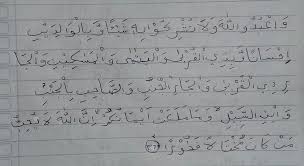 وَاعْبُدُوا اللّٰهَ وَلَا تُشْرِكُوْا بِهٖ شَيْئًا وَّبِالْوَالِدَيْنِ
اِحْسَانًا وَّبِذِى الْقُرْبٰى وَالْيَتٰمٰى وَالْمَسٰكِيْنِ وَالْجَا
رِ ذِى الْقُرْبٰى وَالْجَارِ الْجُنُبِ وَالصَّاحِبِ بِالْجَنْۢبِ
وَابْنِ السَّبِيْلِ وَمَا مَلَكَتْ اَيْمَانُكُمْ اِنَّ اللّٰهَ لَا يُحِبُّ
مَنْ كَانَ مُخْتَالًا فَخُوْرًا